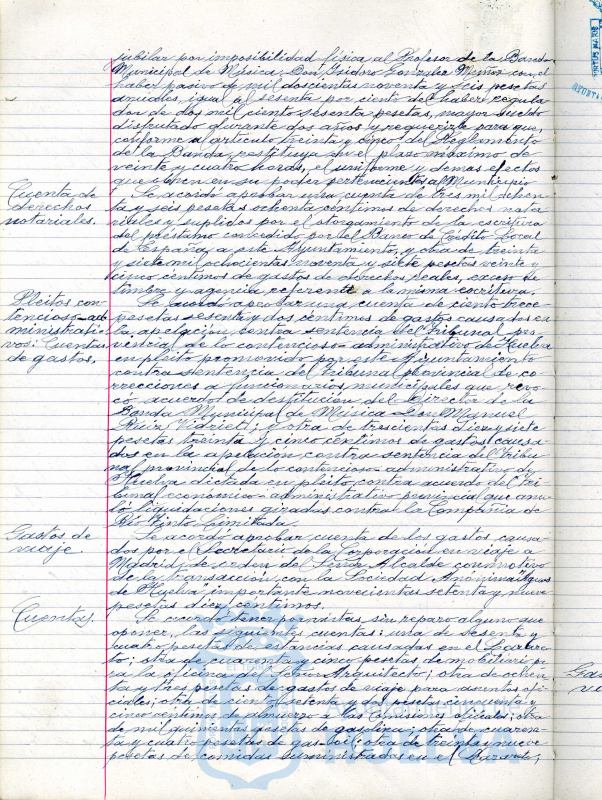 jubilar por imposibilidad física al Profesor de la Banda
Municipal de Música, Don Isidoro Gonzalez Muñoz con el
haber pasivo de mil doscientas noventa y seis pesetas
anuales, igual al sesenta por ciento de haber regula-
dor de dos mil ciento sesenta pesetas, mayor sueldo
disfrutado durante dos años y requerirle para que,
conforme al artículo treinta y cinco del Reglamento
de la Banda, restituya en el plazo máximo de
veinte y cuatro horas, el uniforme y demas efectos
que obren en su poder pertenecientes al Municipio
Cuenta de
derechos
notariales.
Se acordó aprobar una cuenta de tres mil ochen-
ta y seis pesetas ochenta centimos de derechos nota-
riales y suplidos por el otorgamiento de la escritura
del préstamo concedido por el Banco de Crédito Local
de España, a este Ayuntamiento, y otra de treinta
y siete mil ochocientas noventa y siete pesetas veinte y
cinco centimos de gastos de derechos reales, exceso de
timbre y agencia referente a la misma escritura;
Pleitos con-
tencioso-ad-
ministrati-
vos: Cuentas
de gastos.
Se acordó aprobar una cuenta de ciento trece
pesetas sesenta y dos céntimos de gastos causados en
la apelación contra sentencia del Tribunal pro-
vincial de lo contencioso-administrativo de Huelva
en pleito promovido por este Ayuntamiento
contra sentencia del Tribunal provincial de co-
rrecciones a funcionarios municipales que revo-
có acuerdo de destitución del Director de la
Banda Municipal de Música Don Manuel
Ruiz Vidriet; y otra de trescientas diez y siete
pesetas treinta y cinco céntimos de gastos causa-
dos en la apelación contra sentencia del Tribu-
nal provincial de lo contencioso-administrativo de
Huelva dictada en pleito contra acuerdo del Tri-
bunal económico-administrativo provincial que anu-
ló liquidaciones giradas contra la Compañía de
Rio Tinto Limitada.
Gastos de
viaje.
Se acordó aprobar cuenta de los gastos causa-
dos por el Secretario de la Corporación en viaje a
Madrid de orden del Señor Alcalde con motivo
de la transacción con la Sociedad Anónima Aguas
de Huelva importante novecientas setenta y nueve
pesetas diez centimos.
Cuentas.
Se acordó tener por vistas, sin reparo alguno que
oponer, las siguientes cuentas: una de sesenta y
cuatro pesetas de estancias causadas en el Lazare-
to; otra de cuarenta y cinco pesetas de mobiliario pa-
ra la oficina del Señor Arquitecto; otra de ochen-
ta y tres pesetas de gastos de viaje para asuntos ofi-
ciales; otra de ciento setenta y una pesetas cincuenta y
cinco centimos de almuerzo a las Comisiones oficiales; otra
de mil quinientas pesetas de gasolina; otra de cuaren-
ta y cuatro pesetas de gas-oil; otra de treinta y nueve
pesetas de comidas suministradas en el